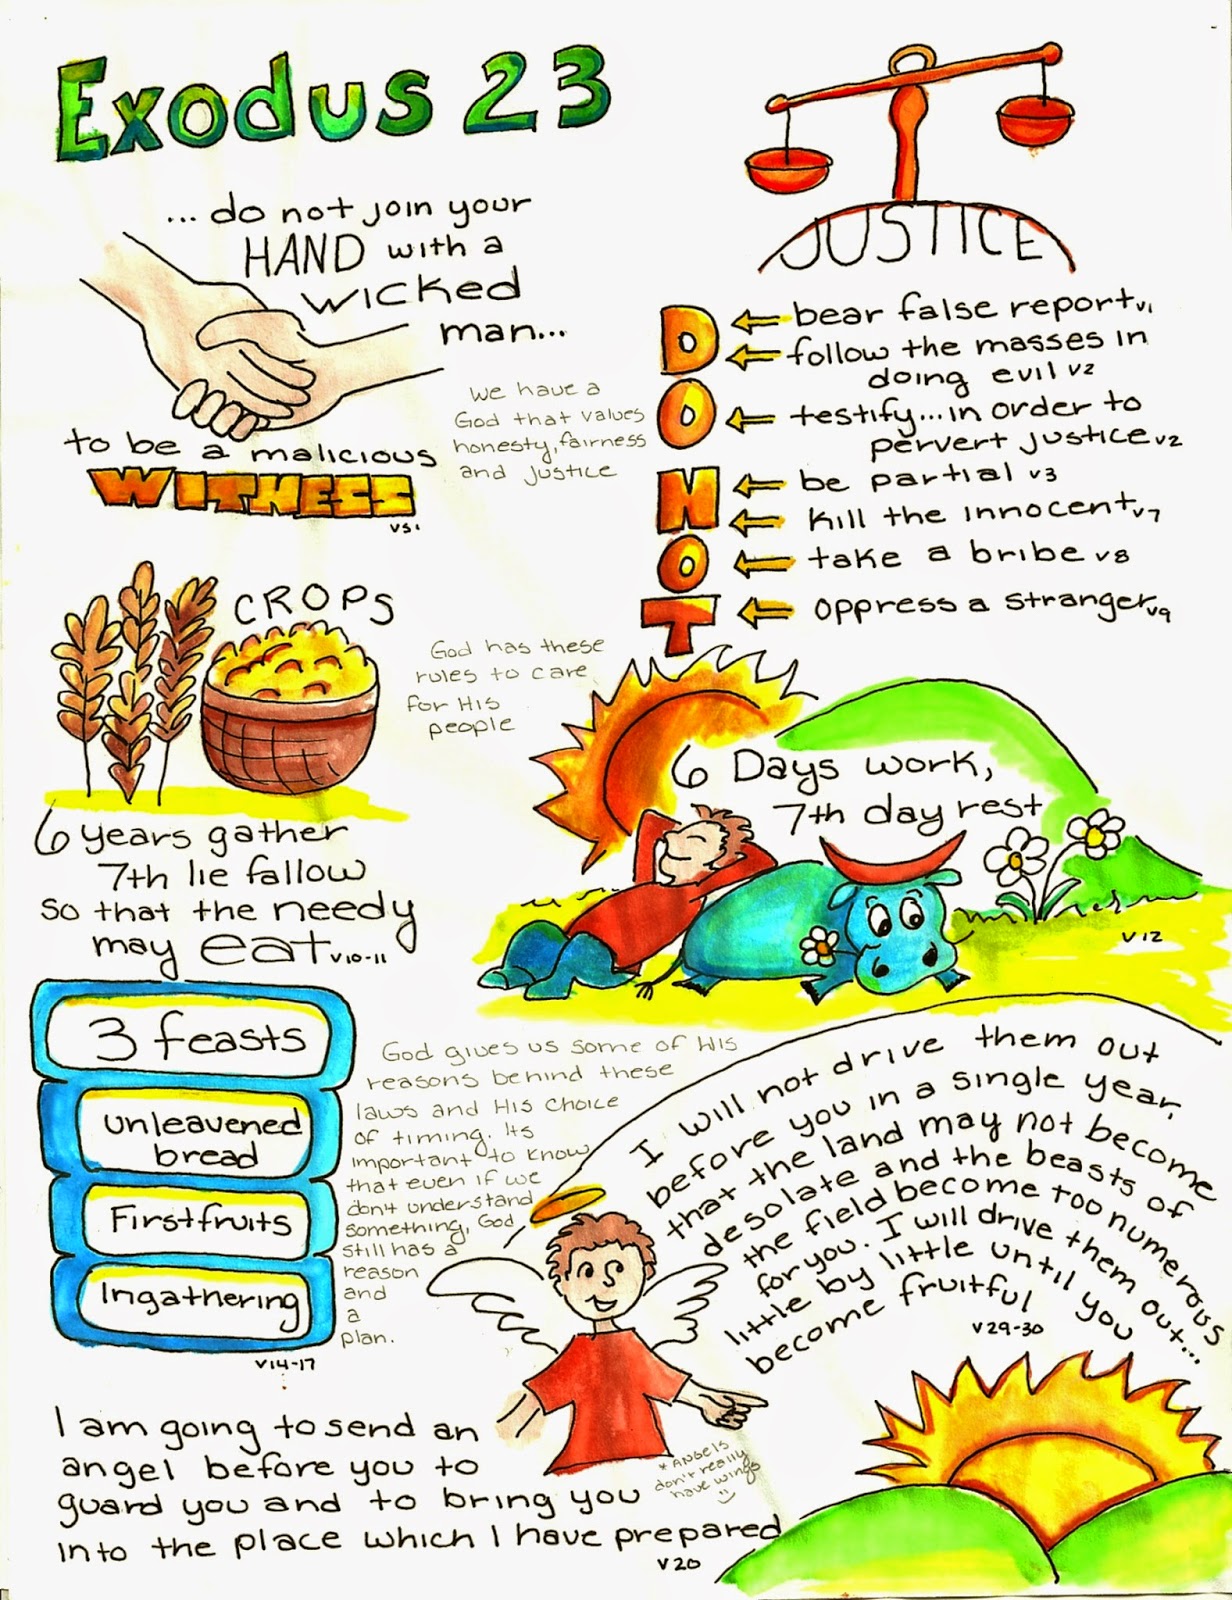 Exodus 23
... do not join your
HAND with a
wicked
man...
to be a malicious
WITNESS
vs1
we have a
God that values
honesty, fairness
and justice
JUSTICE
DO NOT
bear false report v1
follow the masses in
doing evil v2
testify... in order to
pervert justice v2
be partial v3
kill the innocent v7
take a bribe v8
oppress a stranger v9
CROPS
6 years gather
7th lie fallow
so that the needy
may eat v10-11
God has these
rules to care
for His
people
6 Days work,
7th day rest
v12
3 feasts
unleavened
bread
Firstfruits
Ingathering
v14-17
God gives us some of His
reasons behind these
laws and His choice
of timing. Its
important to know
that even if we
don't understand
something, God
still has a
reason
and
a
plan.
I will not drive them out
before you in a single year,
that the land may not become
desolate and the beasts of
the field become too numerous
for you. I will drive them out...
little by little until you
become fruitful
v29-30
I am going to send an
angel before you to
guard you and to bring you
into the place which I have prepared
v20
*Angels
don't really
have wings